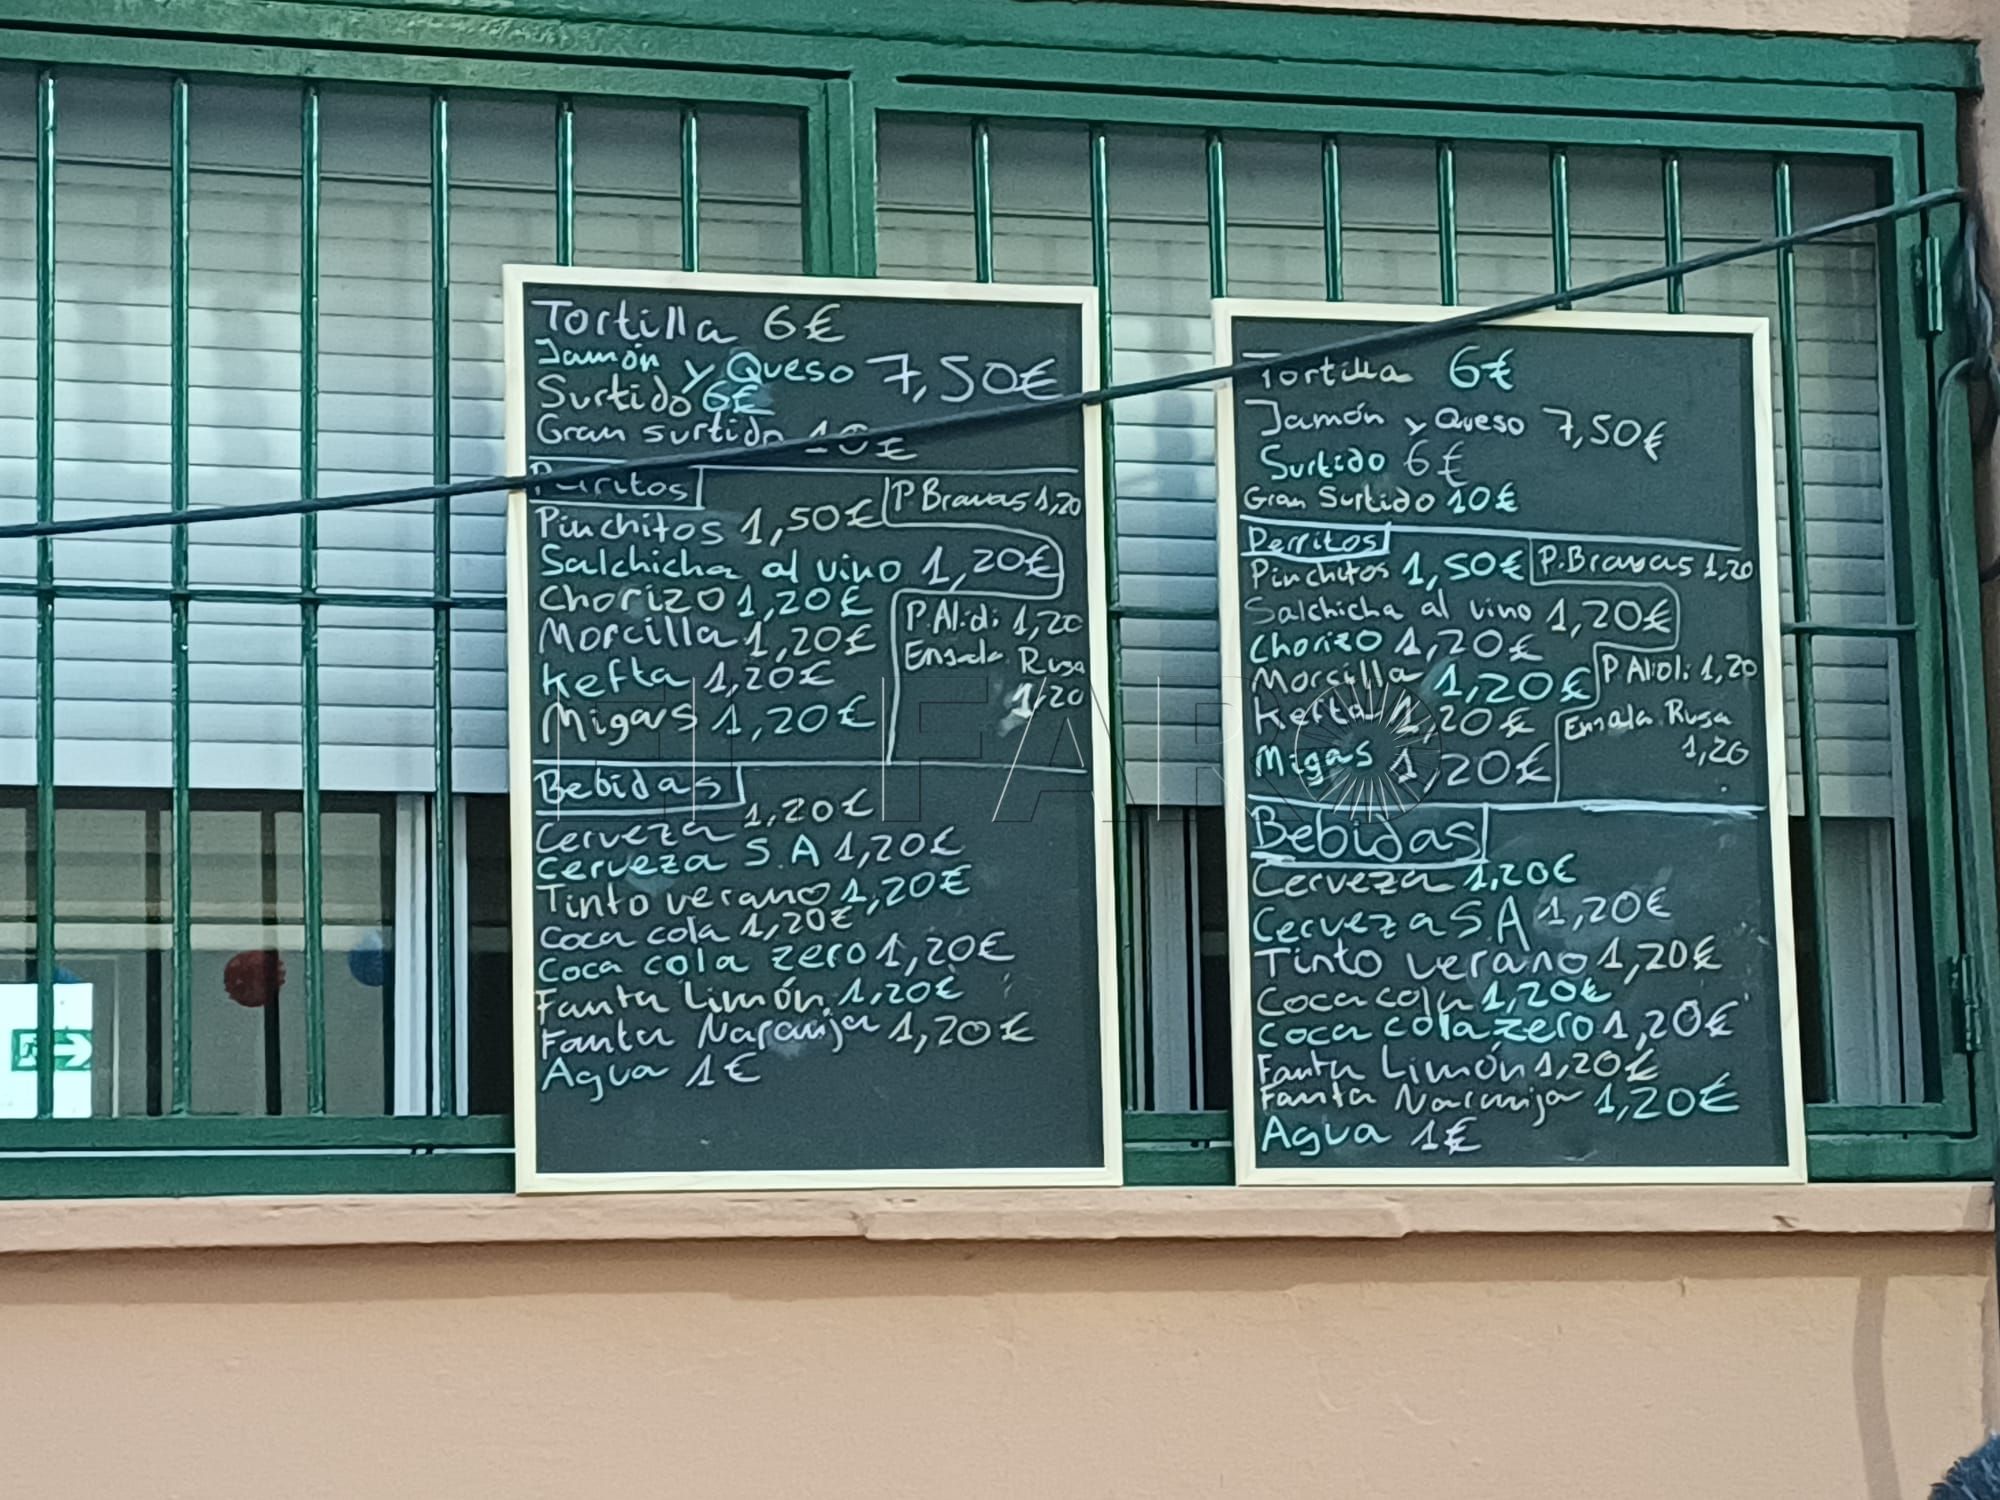 Tortilla 6€
Jamón y Queso 7,50€
Surtido 6€
Gran surtido 10€
Perritos
Pinchitos 1,50€
P Bravas 1,20
Salchicha al vino 1,20€
Chorizo 1,20€
P.Alioli 1,20
Morcilla 1,20€
Ensala. Rusa
1,20
Kefta 1,20€
Migas 1,20€
Bebidas
Cerveza 1,20€
Cerveza S.A 1,20€
Tinto verano 1,20€
Coca cola 1,20€
Coca cola zero 1,20€
Fanta Limón 1,20€
Fanta Naranja 1,20€
Agua 1€
Tortilla 6€
Jamón y Queso 7,50€
Surtido 6€
Gran Surtido 10€
Perritos
Pinchitos 1,50€
P.Bravas 1,20
Salchicha al vino 1,20€
Chorizo 1,20€
Morcilla 1,20€
P Alioli 1,20
Kefta 1,20€
Ensala. Rusa
1,20
Migas 1,20€
Bebidas
Cerveza 1,20€
Cerveza S.A 1,20€
Tinto verano 1,20€
Coca cola 1,20€
Coca cola zero 1,20€
Fanta Limón 1,20€
Fanta Naranja 1,20€
Agua 1€
EL FARO